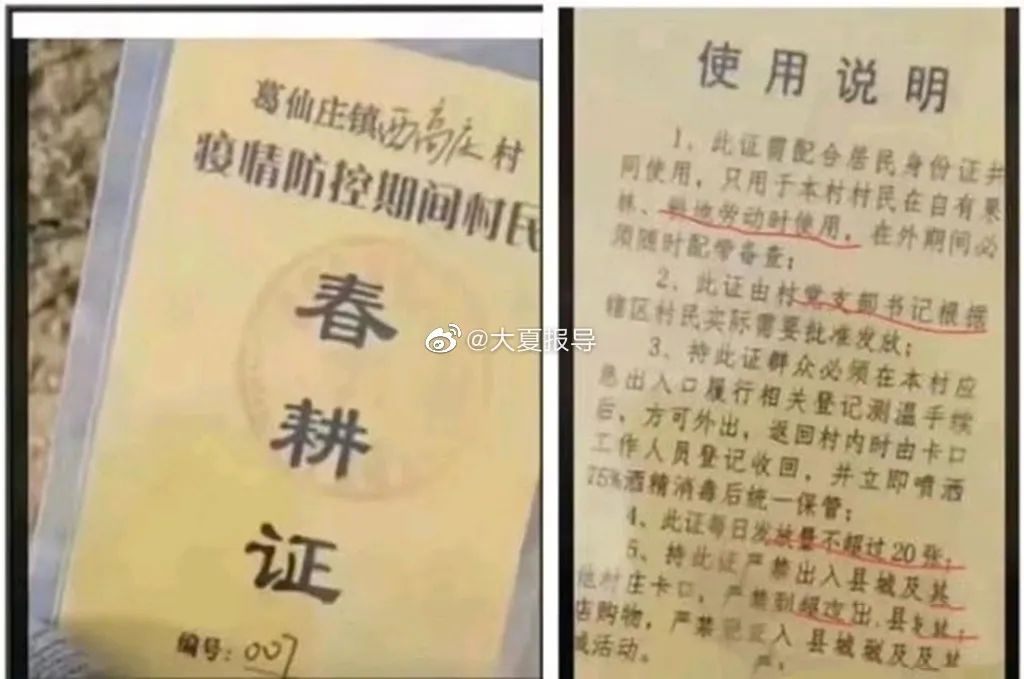 葛仙庄镇西高庄村
疫情防控期间村民
春
耕
证
编号：007
@大夏报导
使用说明
1、此证需配合居民身份证共
同使用，只用于本村村民在自有果
林、耕地劳动时使用，在外期间必
须随时配带备查；
2、此证由村党支部书记根据
辖区村民实际需要批准发放；
3、持此证群众必须在本村应
急出入口履行相关登记测温手续
后，方可外出，返回村内时由卡口
工作人员登记收回，并立即喷洒
75%酒精消毒后统一保管；
4、此证每日发放量不超过20张；
5、持此证严禁出入县城及其
他村庄卡口，严禁到
店购物，严禁 入县城
域活动。